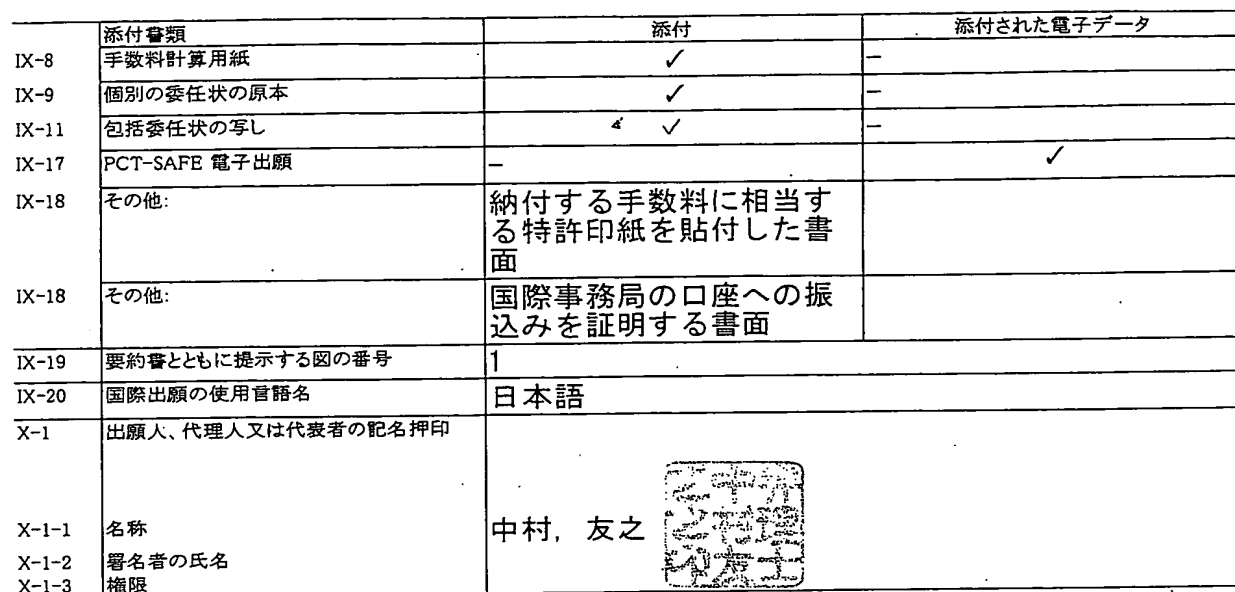 添付書類 添付 添付された電子データ
IX-8 手数料計算用紙 ✓ −
IX-9 個別の委任状の原本 ✓ −
IX-11 包括委任状の写し ✓ −
IX-17 PCT-SAFE 電子出願 − ✓
IX-18 その他: 納付する手数料に相当す
る特許印紙を貼付した書
面
IX-18 その他: 国際事務局の口座への振
込みを証明する書面
IX-19 要約書とともに提示する図の番号 1
IX-20 国際出願の使用言語名 日本語
X-1 出願人、代理人又は代表者の記名押印
X-1-1 名称 中村, 友之
X-1-2 署名者の氏名
X-1-3 権限